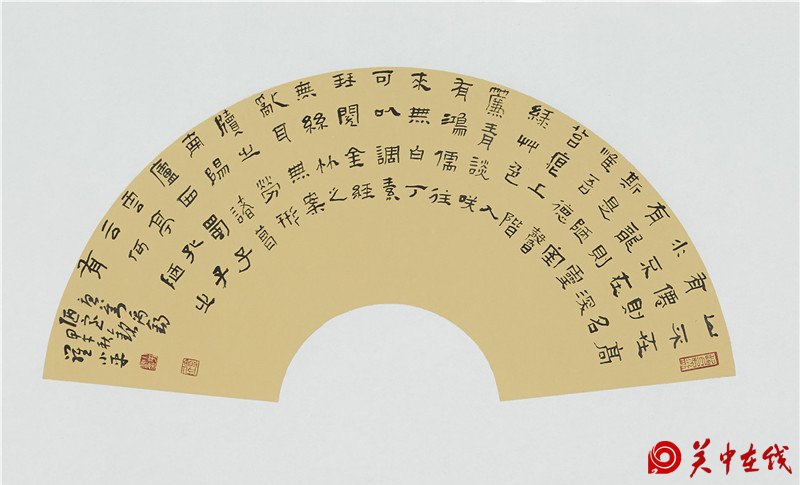 山不在高
有僊則名
水不在深
有龍則靈
斯是陋室
惟吾德馨
苔痕上階
綠艸色入
簾青談咲
有鴻儒往
來無白丁
可㠯調素
琴閱金經
無絲竹之
亂耳無案
牘之勞形
南陽諸葛
廬西蜀子
雲亭孔子
云何陋之
有
唐劉禹錫
陋室銘
甲午秋
羅小平
关中在线